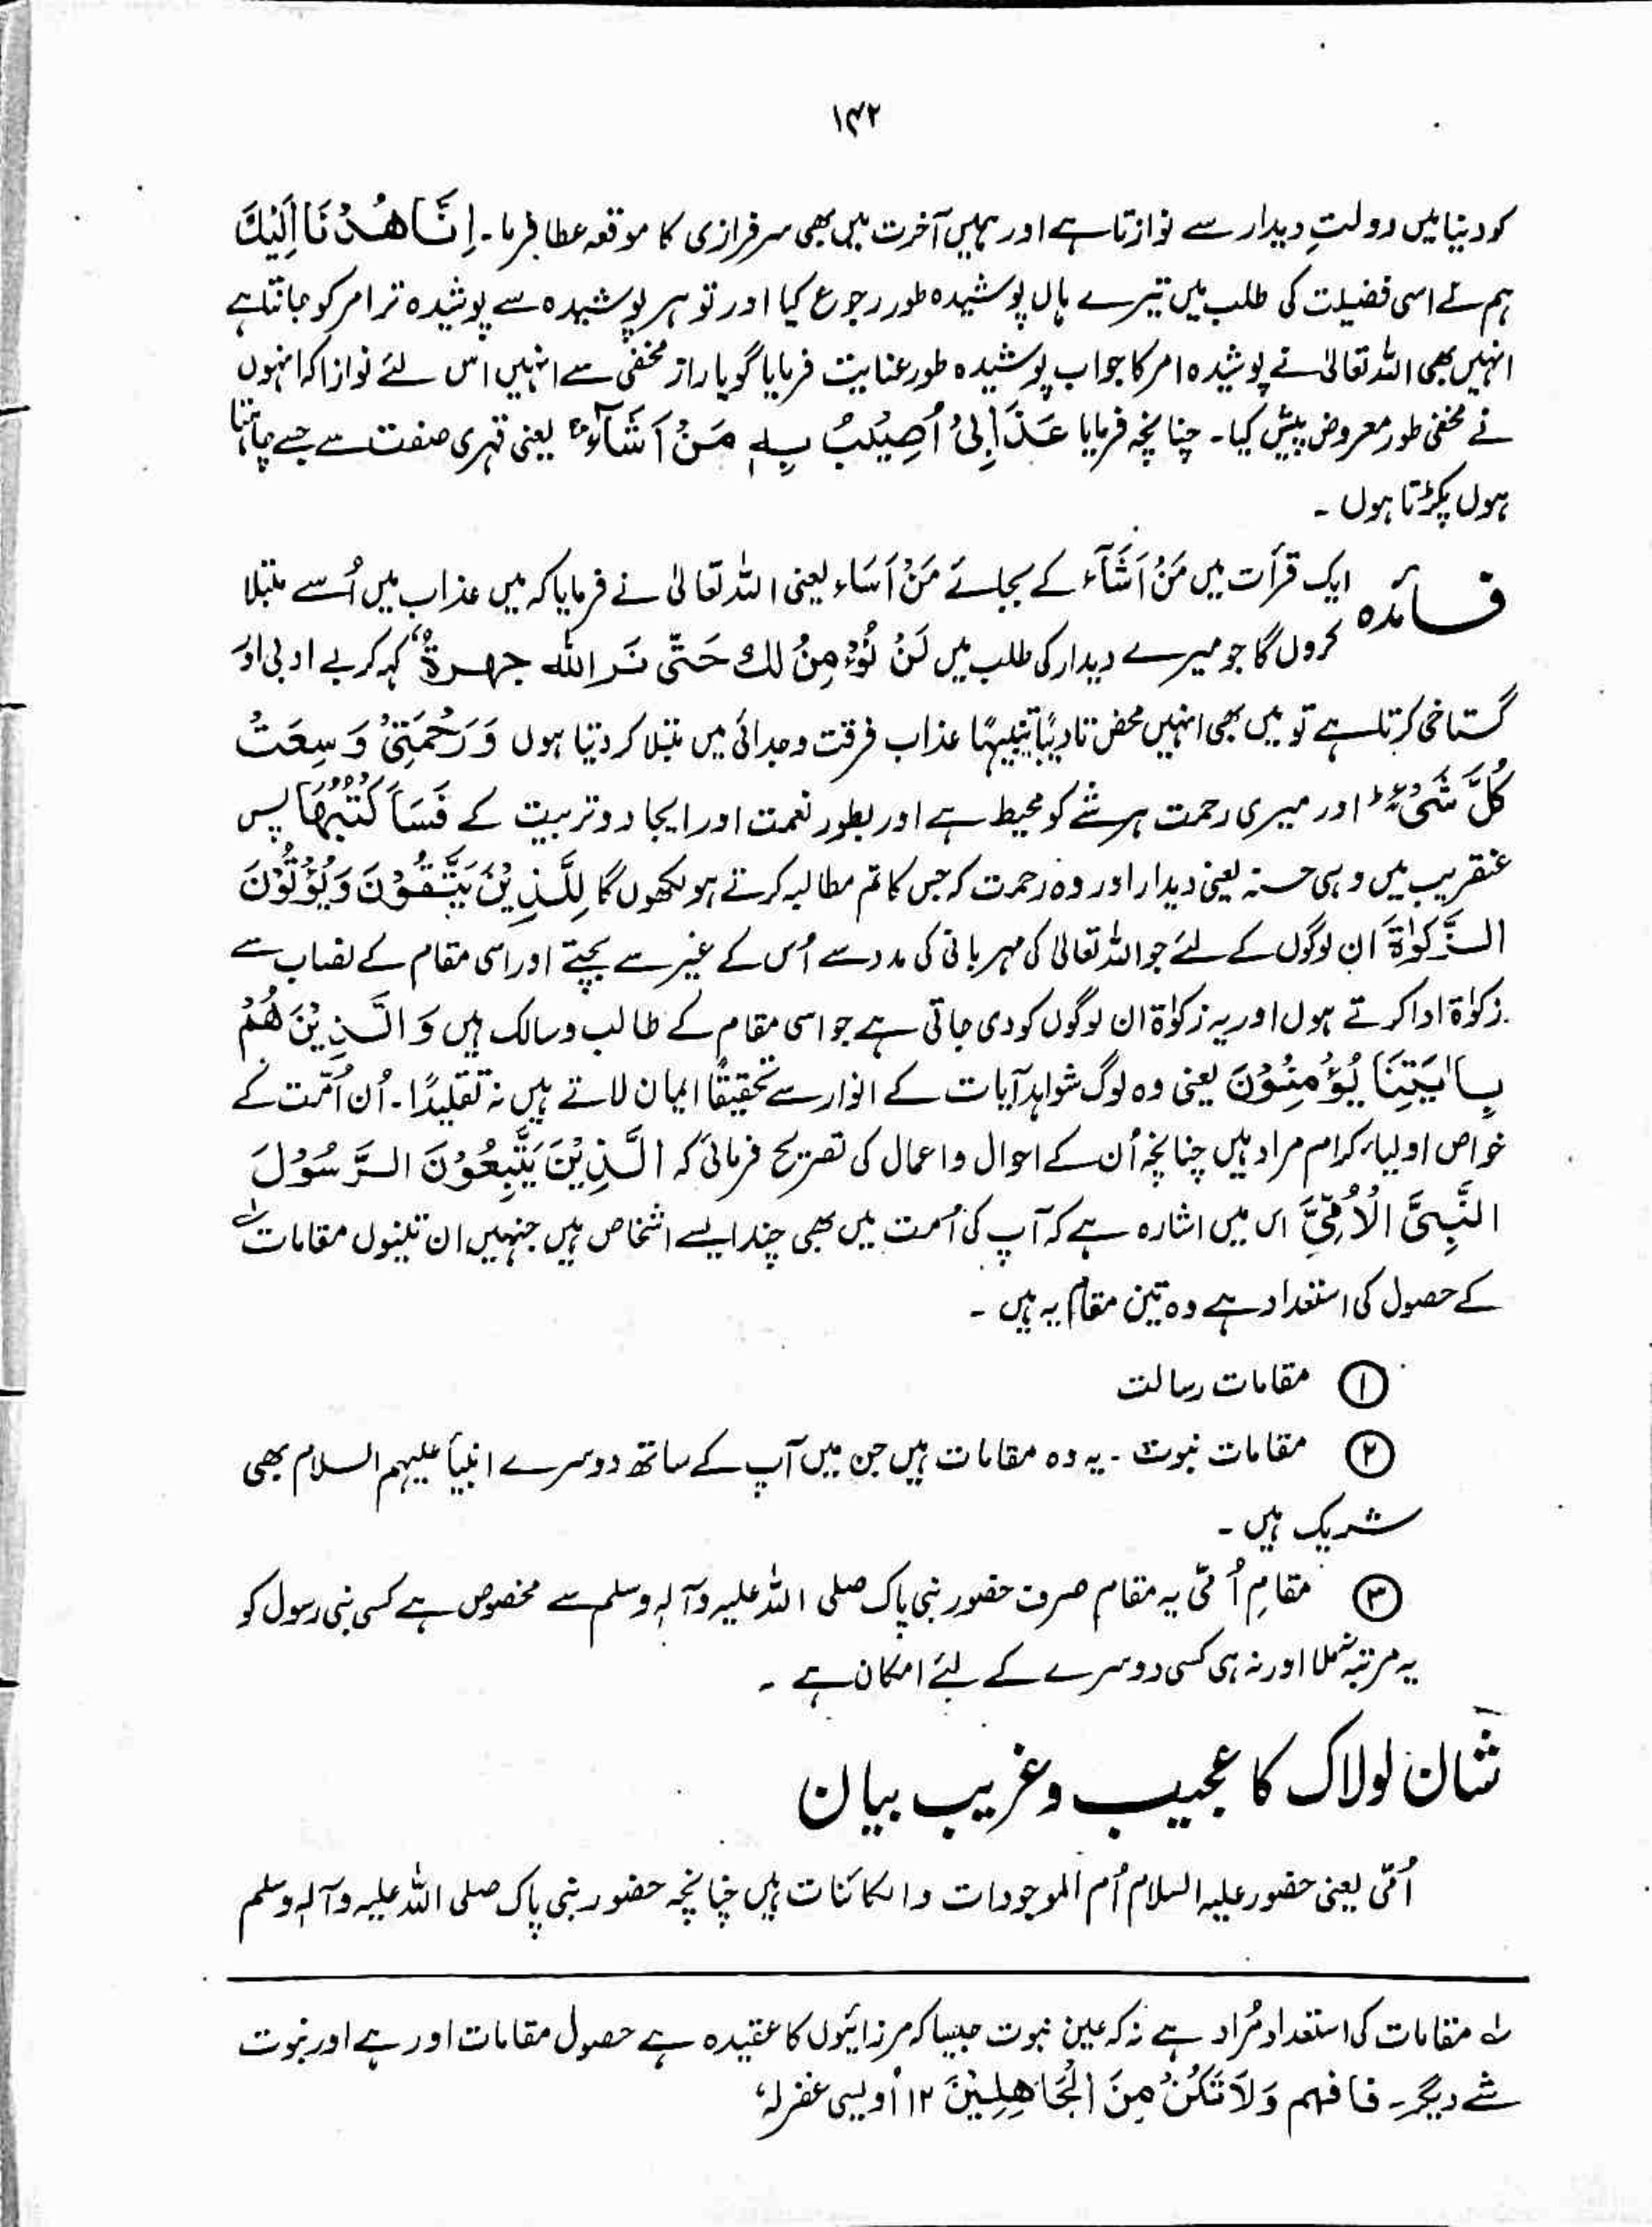 ۱۴۲
کو دنیا میں دولتِ دیدار سے نوازتا ہے اور ہمیں آخرت میں بھی سرفرازی کا موقعہ عطا فرما۔ اِنَّا هُدْنَا اِلَيْكَ
ہم نے اسی فضیلت کی طلب میں تیرے ہاں پوشیدہ طور رجوع کیا اور تو ہر پوشیدہ سے پوشیدہ تر امر کو جانتا ہے
انہیں بھی اللہ تعالیٰ نے پوشیدہ امر کا جواب پوشیدہ طور عنایت فرمایا گویا راز مخفی سے انہیں اس لئے نوازا کہ انہوں
نے مخفی طور معروض پیش کیا۔ چنانچہ فرمایا عَذَابِیْ اُصِیْبُ بِهٖ مَنْ اَشَآءُ یعنی قہری صفت سے جسے چاہتا
ہوں پکڑتا ہوں ۔
فائدہ ایک قرأت میں مَنْ اَشَآء کے بجائے مَنْ اَسَاء یعنی اللہ تعالیٰ نے فرمایا کہ میں عذاب میں اُسے مبتلا
کروں گا جو میرے دیدار کی طلب میں لَنْ نُؤْمِنُ لك حَتّٰی نَرَ الله جهرةً کہہ کر بے ادبی اور
گستاخی کرتا ہے تو میں بھی انہیں محض تادیبًا تنبیہًا عذاب فرقت و جدائی میں مبتلا کر دیتا ہوں وَ رَحْمَتِیْ وَ سِعَتْ
كُلَّ شَیْءٍ ط اور میری رحمت ہر شے کو محیط ہے اور بطور نعمت اور ایجاد و تربیت کے فَسَاَكْتُبُهَا پس
عنقریب میں وہی حسنہ یعنی دیدار اور وہ رحمت کہ جس کا تم مطالبہ کرتے ہو لکھوں گا لِلَّذِیْنَ یَتَّقُوْنَ وَ یُؤْتُوْنَ
الزَّكوٰةَ ان لوگوں کے لئے جو اللہ تعالیٰ کی مہربانی کی مدد سے اُس کے غیر سے بچتے اور اسی مقام کے نصاب سے
زکوٰۃ ادا کرتے ہوں اور یہ زکوٰۃ ان لوگوں کو دی جاتی ہے جو اسی مقام کے طالب و سالک ہیں وَ الَّذِیْنَ هُمْ
بِاٰیٰتِنَا یُؤْمِنُوْنَ یعنی وہ لوگ شواہد آیات کے انوار سے تحقیقًا ایمان لاتے ہیں نہ تقلیدًا۔ اُن اُمّت کے
خواص اولیاء کرام مراد ہیں چنانچہ اُن کے احوال و اعمال کی تصریح فرمائی کہ اَلَّذِیْنَ یَتَّبِعُوْنَ الرَّسُوْلَ
النَّبِیَّ الْاُمِّیَّ اس میں اشارہ ہے کہ آپ کی اُمت میں بھی چند ایسے اشخاص ہیں جنہیں ان تینوں مقامات لہ
کے حصول کی استعداد ہے وہ تین مقام یہ ہیں ۔
① مقامات رسالت
② مقامات نبوت ۔ یہ وہ مقامات ہیں جن میں آپ کے ساتھ دوسرے انبیأ علیہم السلام بھی
شریک ہیں ۔
③ مقامِ اُمّی یہ مقام صرف حضور نبی پاک صلی اللہ علیہ وآلہ وسلم سے مخصوص ہے کسی نبی رسول کو
یہ مرتبہ نہ ملا اور نہ ہی کسی دوسرے کے لئے امکان ہے ۔
شان لولاک کا عجیب و غریب بیان
اُمّی یعنی حضور علیہ السلام اُم الموجودات والکائنات ہیں چنانچہ حضور نبی پاک صلی اللہ علیہ وآلہ وسلم
لہ مقامات کی استعداد مُراد ہے نہ کہ عین نبوت جیسا کہ مرزائیوں کا عقیدہ ہے حصول مقامات اور ہے اور نبوت
شے دیگر۔ فافہم وَلَا تَكُنْ مِنَ الْجَاهِلِیْنَ ۱۲ اُویسی غفرلہٗ